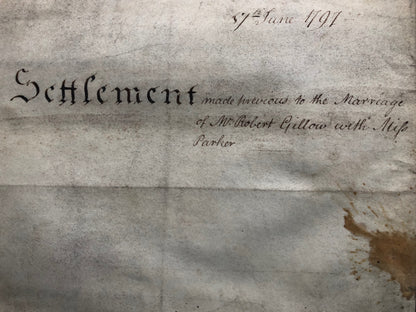 17th June 1797
Settlement made previous to the Marriage
of Mr Robert Gillow with Miss
Parker